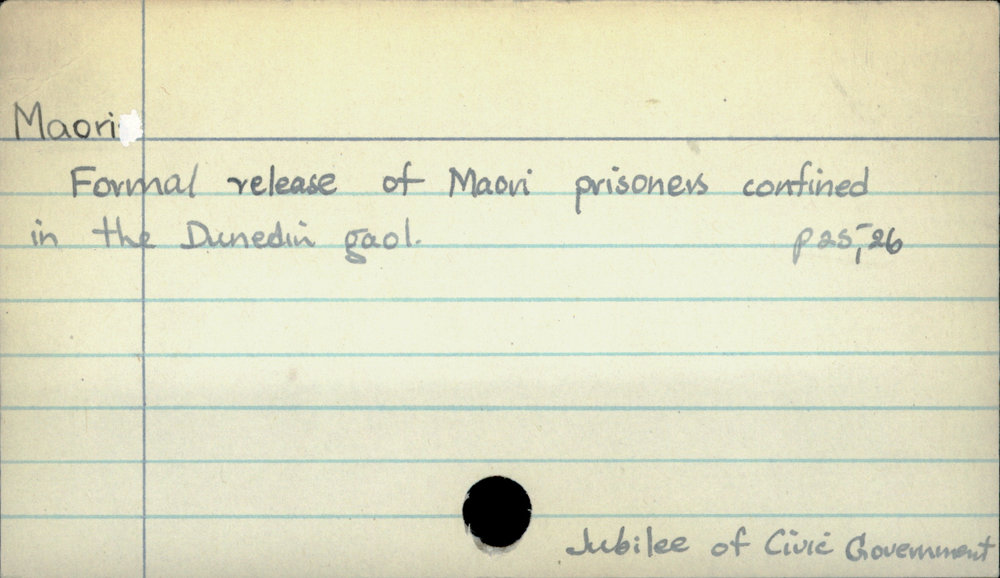 Maori
Formal release of Maori prisoners confined
in the Dunedin gaol. p25, 26
Jubilee of Civic Government